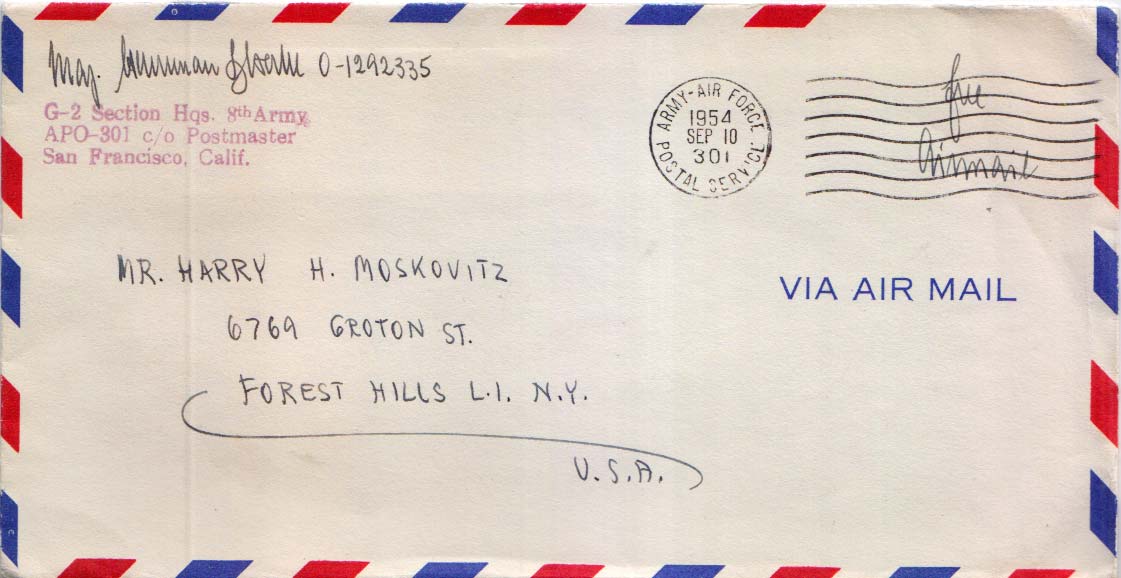 Maj. O-1292335
G-2 Section Hqs. 8th Army
APO-301 c/o Postmaster
San Francisco, Calif.
ARMY-AIR FORCE
1954
SEP 10
301
POSTAL SERVICE
free
Airmail
MR. HARRY H. MOSKOVITZ
6769 GROTON ST.
FOREST HILLS L.I. N.Y.
U.S.A.
VIA AIR MAIL